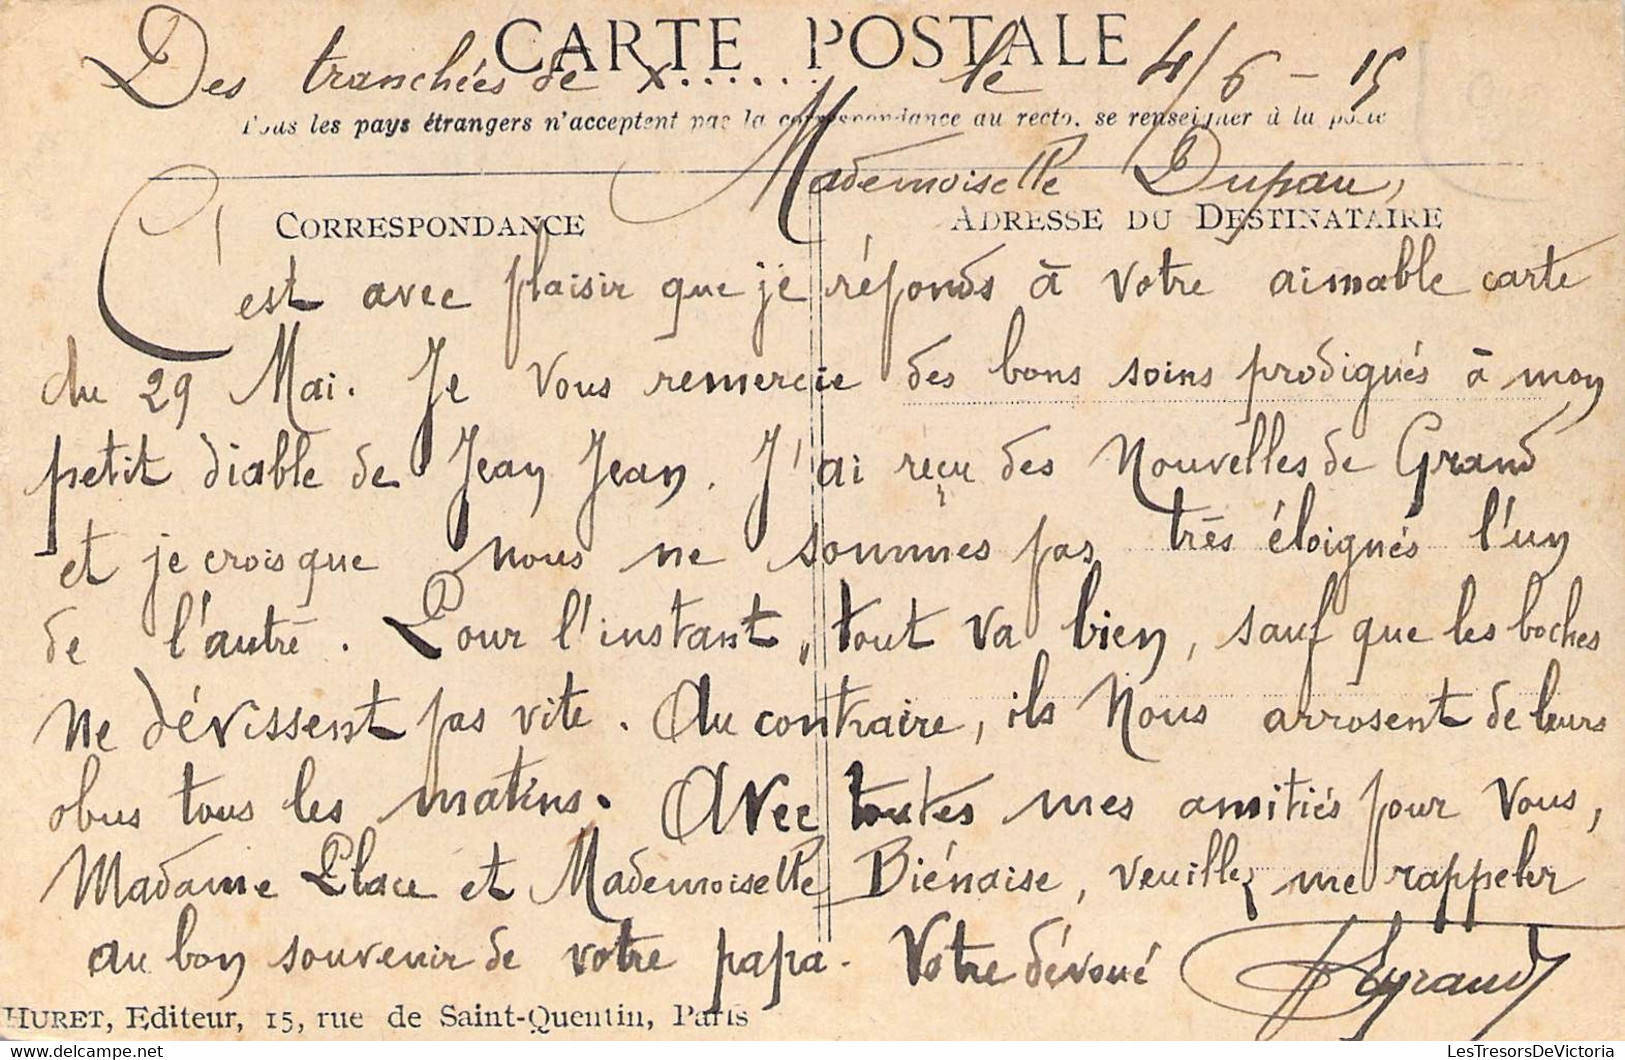 CARTE POSTALE
Des tranchées de X...... le 4/6 - 15
Tous les pays étrangers n'acceptent pas la correspondance au recto, se renseigner à la poste
Mademoiselle Dupau,
CORRESPONDANCE
ADRESSE DU DESTINATAIRE
C'est avec plaisir que je réponds à votre aimable carte
du 29 Mai. Je vous remercie des bons soins prodigués à mon
petit diable de Jean Jean. J'ai reçu des Nouvelles de Grand
et je crois que nous ne sommes pas très éloignés l'un
de l'autre. Pour l'instant, tout va bien, sauf que les boches
ne dévissent pas vite. Au contraire, ils nous arrosent de leurs
obus tous les matins. Avec toutes mes amitiés pour vous,
Madame Place et Mademoiselle Biénaise, veuillez me rappeler
au bon souvenir de votre papa. Votre dévoué
HURET, Editeur, 15, rue de Saint-Quentin, Paris
LesTresorsDeVictoria